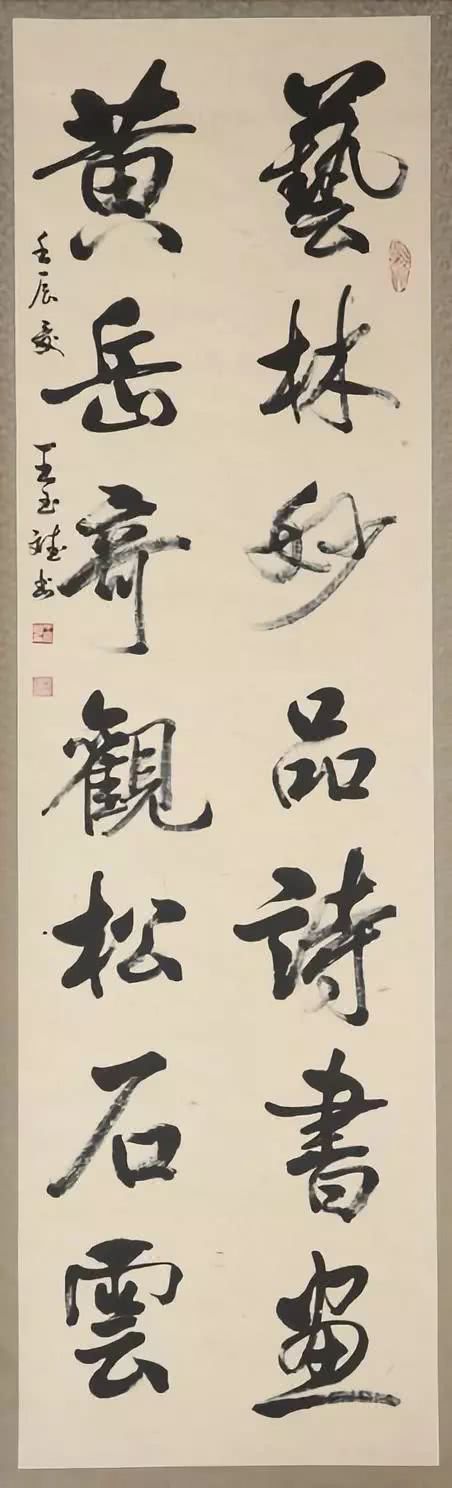 藝林妙品詩書畫
黃岳奇觀松石雲
壬辰夏
王玉書